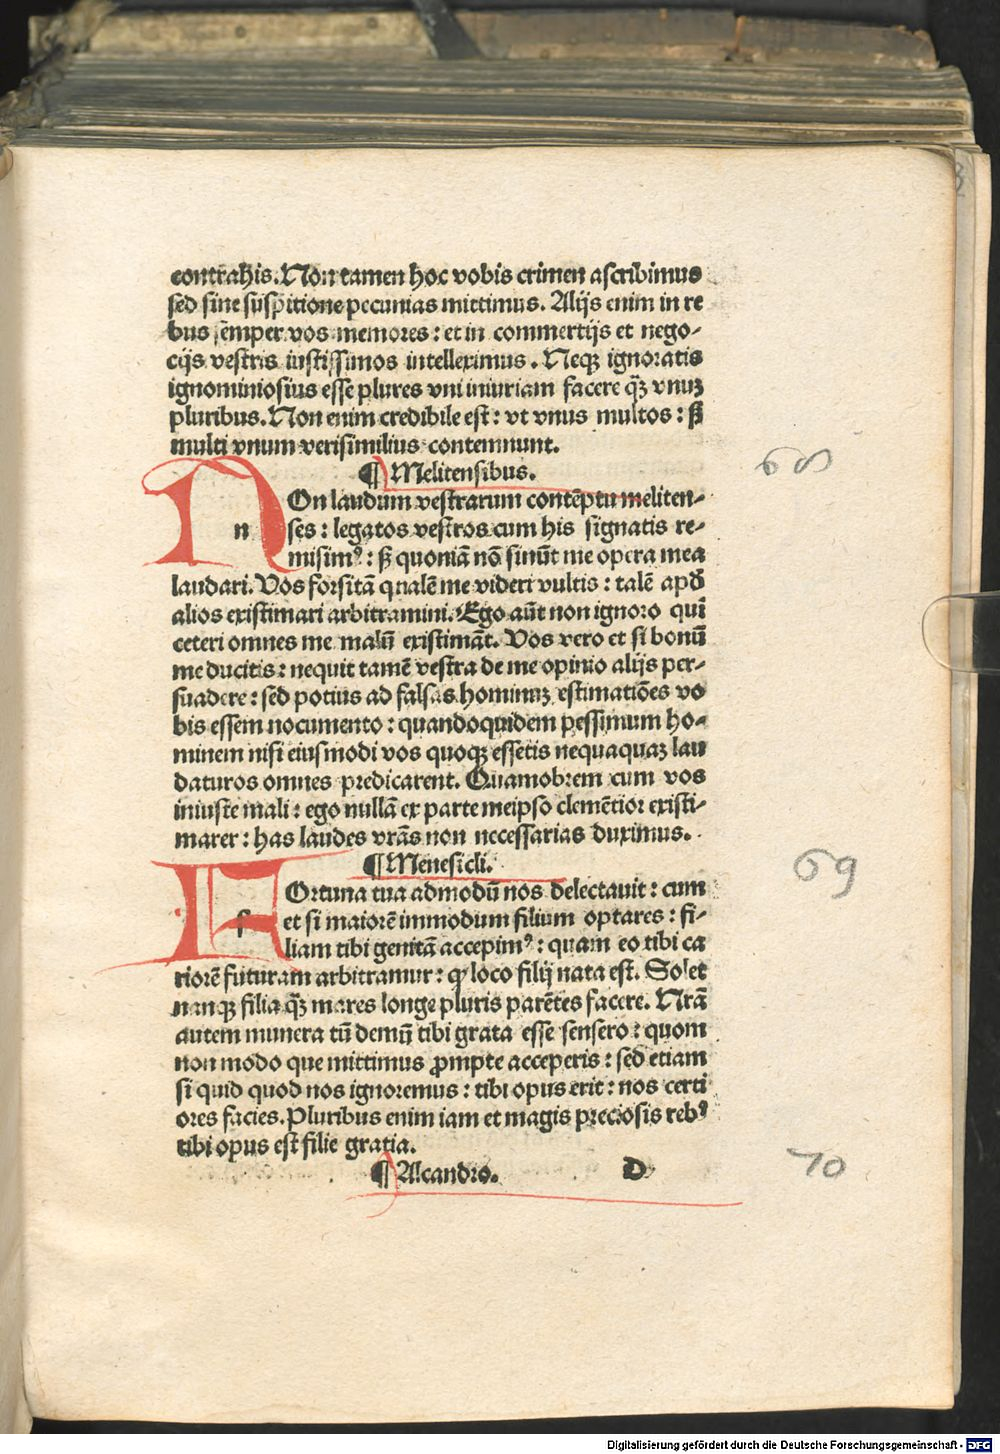 contrahis. Non tamen hoc vobis crimen ascribimus
sed sine suspitione pecunias mittimus. Alijs enim in re
bus semper vos memores: et in commertijs et nego-
cijs vestris iustissimos intelleximus. Neqꝫ ignoratis
ignominiosius esse plures vni iniuriam facere q̃ꝫ vnuꝫ
pluribus. Non enim credibile est: vt vnus multos: sꝫ
multi vnum verisimilius contemnunt.
¶ Melitensibus.
68
NOn laudum vestrarum contēptu meliten-
n ses: legatos vestros cum his signatis re-
misimꝰ: sꝫ quoniā nō sinūt me opera mea
laudari. Vos forsitā qualē me videri vultis: talē apd̄
alios existimari arbitramini. Ego aūt non ignoro quī
ceteri omnes me malū existimāt. Vos vero et si bonū
me ducitis: nequit tamē vestra de me opinio alijs per-
suadere: sed potius ad falsas hominuꝫ estimatiōes vo
bis essem nocumento: quandoquidem pessimum ho-
minem nisi eiusmodi vos quoqꝫ essetis nequaquaꝫ lau
daturos omnes predicarent. Quamobrem cum vos
iniuste mali: ego nullā ex parte meipso clemētior existi-
marer: has laudes vrās non necessarias duximus.
¶ Menesicli.
69
FOrtuna tua admodū nos delectauit: cum
f et si maiorē immodum filium optares: fi-
liam tibi genitā accepimꝰ: quam eo tibi ca
riorē futuram arbitramur: qꝫ loco filij nata est. Solet
nanqꝫ filia q̃ꝫ mares longe pluris parētes facere. Nrām
autem munera tū demū tibi grata esse sensero: quom
non modo que mittimus ꝓmpte acceperis: sed etiam
si quid quod nos ignoremus: tibi opus erit: nos certi
ores facies. Pluribus enim iam et magis preciosis rebꝰ
tibi opus est filie gratia.
¶ Alcandro. D
70
Digitalisierung gefördert durch die Deutsche Forschungsgemeinschaft - DFG